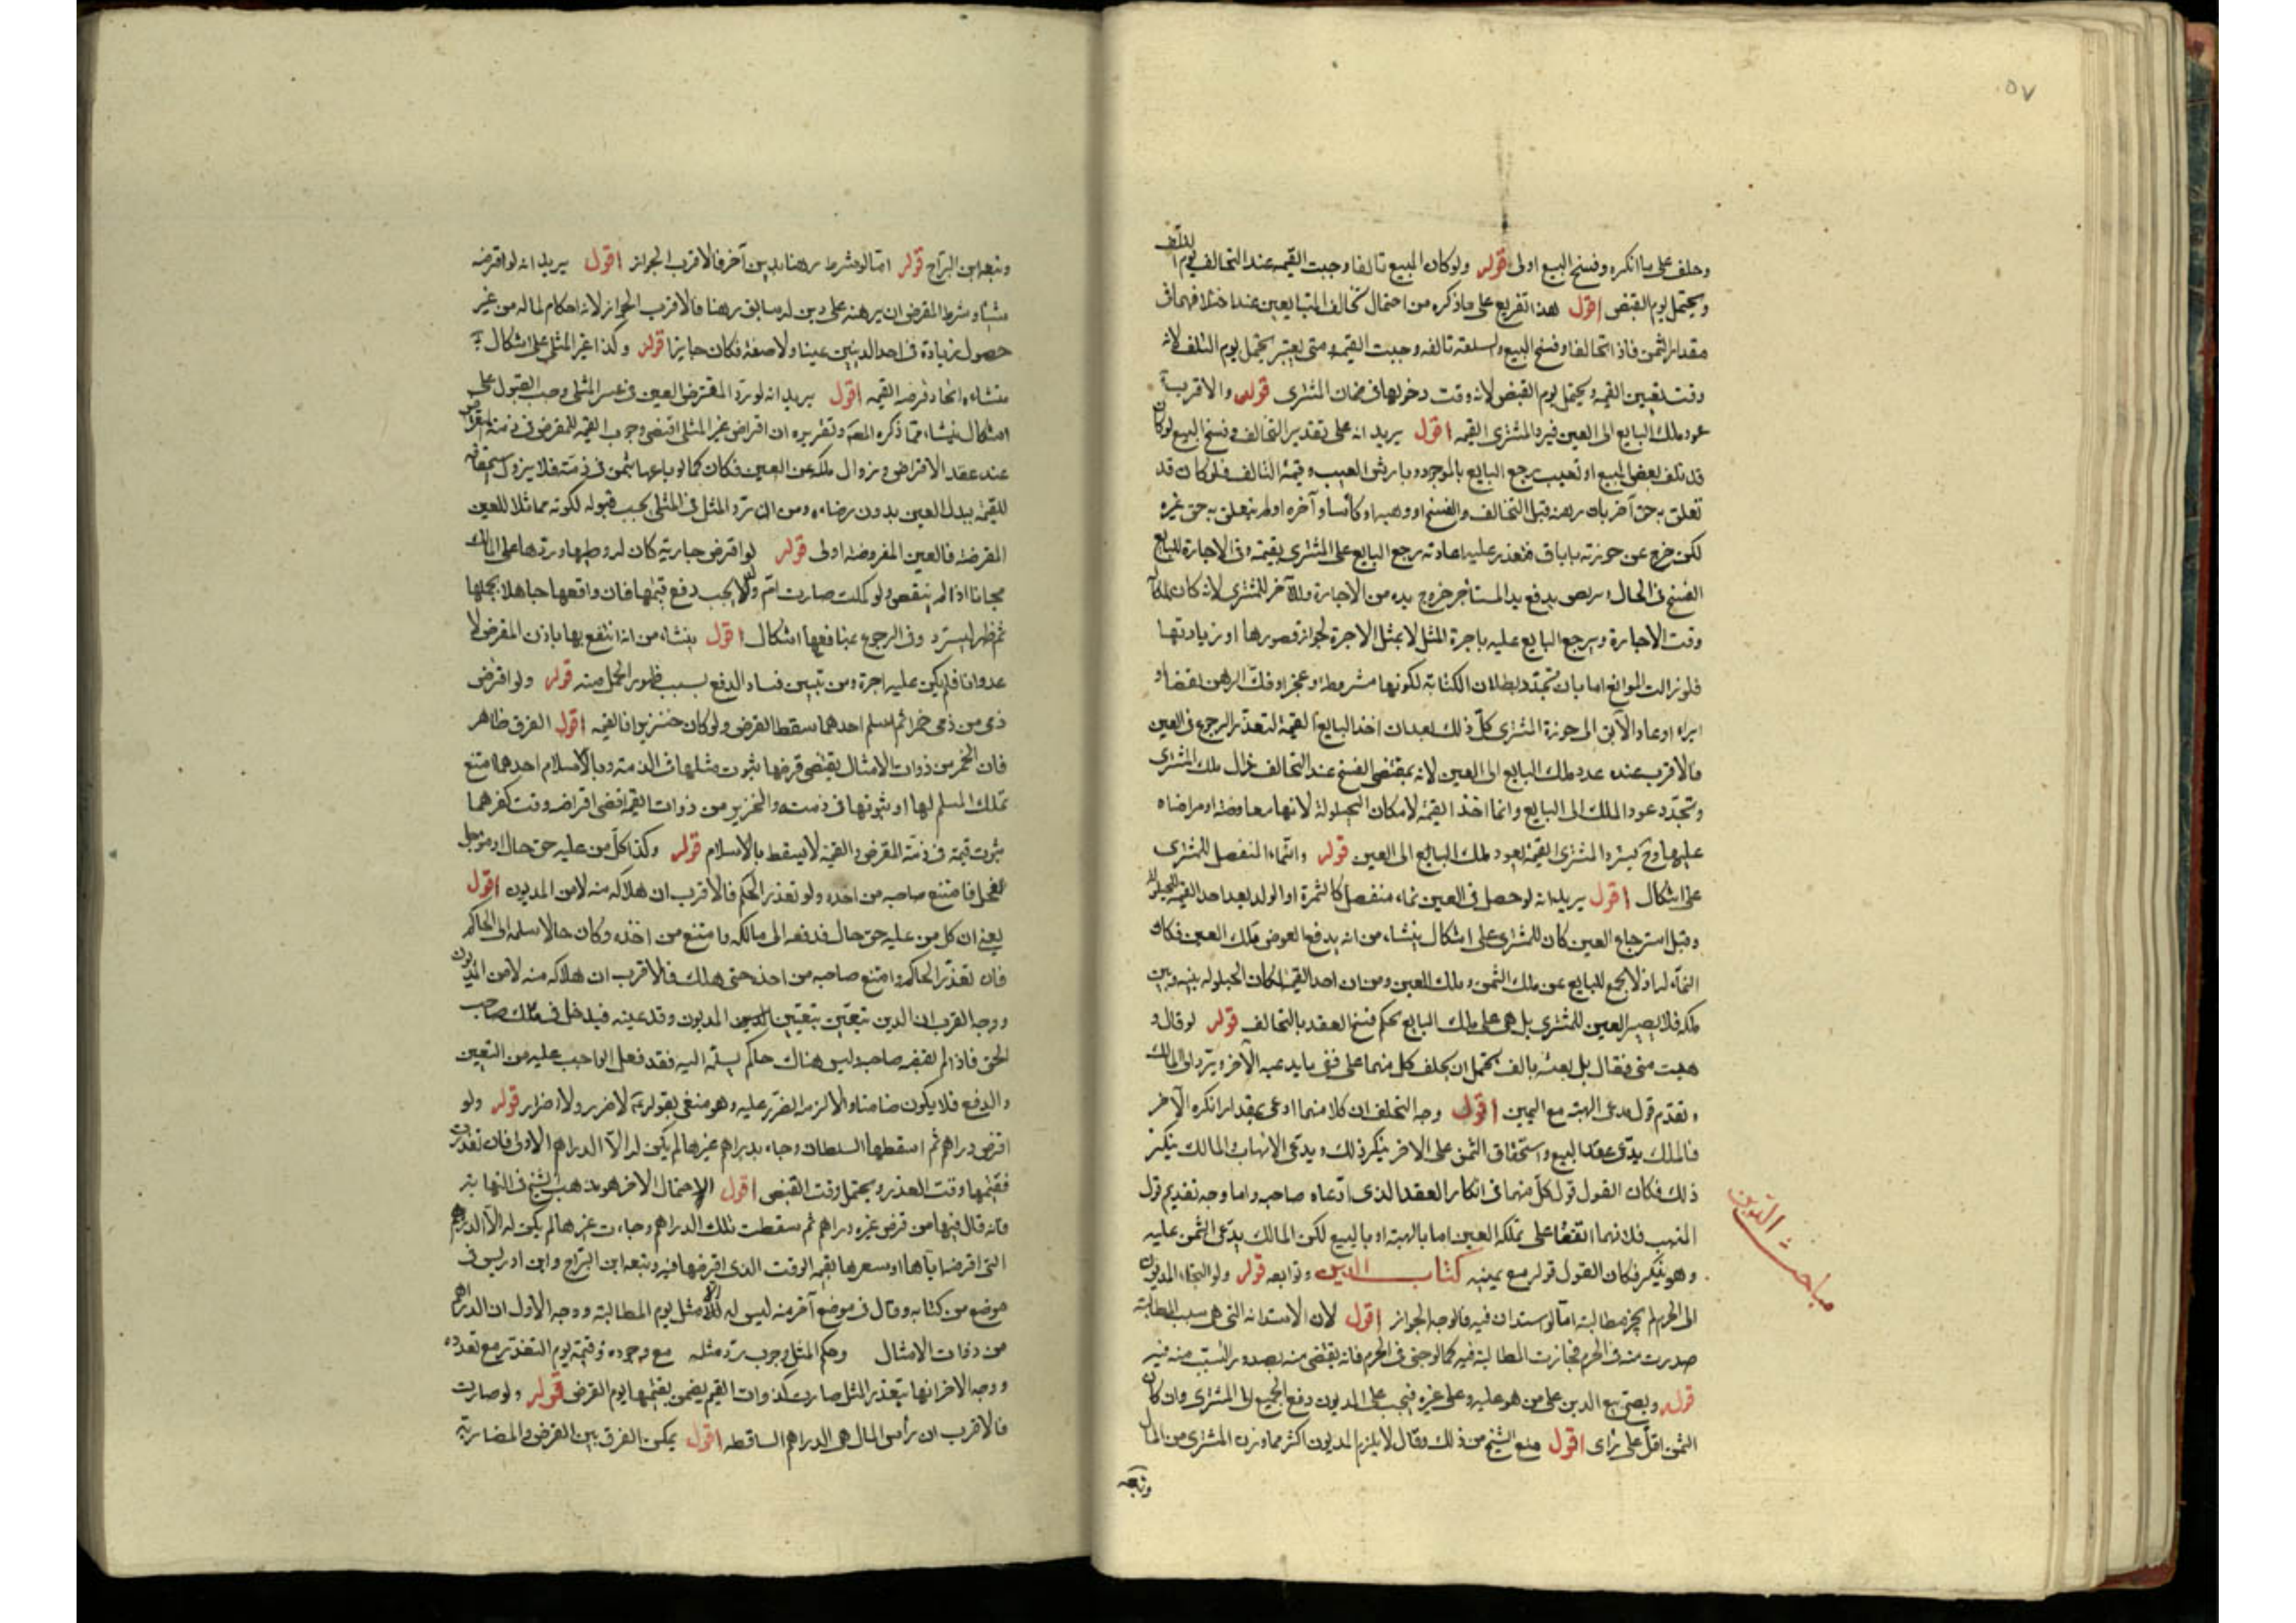 ٥٧
وحلف على ما انكره وفسخ البيع اولى قوله ولو كان المبيع تالفا وجبت القيمة عند التحالف يوم التلف
ويحتمل يوم القبض اقول هذا تفريع على ما ذكره من احتمال تحالف المتبايعين عند اختلافهما في
مقدار الثمن فاذا تحالفا وفسخ البيع والسلعة تالفه وجبت القيمة ومتى يعتبر يحتمل يوم التلف لانه
وقت تعيين القيمه ويحتمل يوم القبض لانه وقت دخولها في ضمان المشترى قوله والاقرب
عود ملك البايع الى العين فيرد المشترى القيمه اقول يريد انه على تقدير التحالف وفسخ البيع لو كان
قد تلف بعض المبيع او تعيب رجع البايع بالموجود وبارش العيب وقيمة التالف فلو كان قد
تعلق به حق آخر بان رهنه قبل التحالف والفسخ او وهبه او كاتبه او آجره او لم يتعلق به حق غيره
لكن خرج عن حوزته باباق فتعذر عليه اعادته رجع البايع على المشترى بقيمته وفى الاجارة للبايع
الفسخ فى الحال يدفع يد المستاجر خروج يده من الاجارة للمشترى لانه كان مملكا
وقت الاجارة ويرجع البايع عليه باجرة المثل لا بمثل الاجرة لجواز قصورها او زيادتها
فلو زالت الموانع اما بان تجدد بطلان الكتابة لكونها مشروطه او عجز او فك الرهن بقضا او
ابراء او عاد الآبق الى حوزة المشترى كل ذلك بعد ان اخذ البايع القيمة لتعذر الرجوع فى العين
فالاقرب عنده عود ملك البايع الى العين لانه بمقتضى الفسخ عند التحالف زال ملك المشترى
وتجدد عود الملك الى البايع وانما اخذ القيمة لامكان الحيلولة لا انها معاوضة او مراضاه
عليها وح يسترد المشترى القيمة لعود ملك البايع الى العين قوله والنماء المنفصل للمشترى
على اشكال اقول يريد انه لو حصل فى العين نماء منفصل كالثمرة او الولد بعد اخذ القيمة للحيلولة
وقبل استرجاع العين كان للمشترى على اشكال ينشاء من انه بدفع العوض ملك العين فكان
النماء له اذ لا يجمع للبايع عن ملك الثمن وملك العين ومن ان اخذ القيمة لمكان الحيلوله بينه وبين
ملكه فلا يصير العين للمشترى بل هى على ملك البايع بحكم فسخ العقد بالتحالف قوله لو قال و
هبت منى فقال بل بعته بالف يحتمل ان يحلف كل منهما على نفى ما يدعيه الآخر ويرد الى المالك
وتقدم قول مدعى الهبة مع اليمين اقول وجه التحالف ان كلا منهما ادعى بمقدار انكره الآخر
فالمالك يدعى عقد البيع واستحقاق الثمن على الاخر ينكر ذلك ويدعى الاتهاب والمالك ينكر
ذلك فكان القول قول كل منهما فى انكار العقد الذى ادعاه صاحبه واما وجه تقديم قول
المتهب فلانهما اتفقا على تملكه العين اما بالهبة او بالبيع لكن المالك يدعى الثمن عليه
وهو ينكر فكان القول قوله مع يمينه كتاب الدين وتوابعه قوله ولو التجاء المديون
الى الحرم لم يجز مطالبته اما لو استدان فيه فالوجه الجواز اقول لان الاستدانة التى هى سبب المطالبة
صدرت منه فى الحرم فجازت المطالبة فيه كما لو جنى فى الحرم فانه يقتص منه بصدور السبب منه فيه
قوله ويصح بيع الدين على من هو عليه وعلى غيره فيجب على المديون دفع الجميع الى المشترى وان كان
الثمن اقل على راى اقول منع الشيخ من ذلك وقال لا يلزم المديون اكثر مما وزن المشترى من المال
وتبعه
مباحث الديون
وتبعه ابن البراج قوله اما لو شرط رهنا بدين آخر فالاقرب الجواز اقول يريد انه لو اقرضه
شيئا وشرط المقرض ان يرهنه على دين له سابق رهنا فالاقرب الجواز لانه احكام لماله من غير
حصول زيادة فى احد الدينين عينا ولا صفة فكان جايزا قوله وكذا غير المثلى على اشكال
منشاءه اتحاد قرضه القيمه اقول يريد انه لو رد المقترض العين فى غير المثلى وجب القبول على
اشكال ينشاء مما ذكره المصنف وتقريره ان اقراض غير المثلى اقتضى وجوب القيمه للمقرض فى ذمة المقترض
عند عقد الاقراض وزوال ملكه عن العين فكان كما لو باعها بثمن فى ذمته فلا يزول استحقاقه
للقيمة ببدل العين بدون رضاءه ومن ان رد المثل فى المثلى يجب قبوله لكونه مماثلا للعين
المقرضة فالعين المقروضة اولى قوله لو اقترض جارية كان له وطيها وردها على المالك
مجانا اذا لم ينقص ولو حملت صارت ام ولد يجب دفع قيمتها فان دافعها جاهلا بحملها
ثم ظهر استرد وفى الرجوع بمنافعها اشكال اقول ينشاء من انه انتفع بها باذن المقرض لا
عدوانا فلم يكن عليه اجرة ومن تبين فساد الدفع بسبب ظهور الحمل منه قوله ولو اقترض
ذمى من ذمى خمرا ثم اسلم احدهما سقط القرض ولو كان خنزيرا فالقيمه اقول الفرق ظاهر
فان الخمر من ذوات الامثال يقتضى قرضها ثبوت مثلها فى الذمة وبالاسلام احدهما امتنع
تملك المسلم لها او ثبوتها فى ذمته والخنزير من ذوات القيم اقتضى اقراضه وقت كفرهما
ثبوت قيمته فى ذمة المقرض والقيمة لا يسقط بالاسلام قوله وكذا كل من عليه حق حال او مؤجل
فحل فامتنع صاحبه من اخذه ولو تعذر الحاكم فالاقرب ان هلاكه منه لا من المديون اقول
يعنى ان كل من عليه حق حال فدفعه الى مالكه وامتنع من اخذه وكان حالا سلمه الى الحاكم
فان تعذر الحاكم وامتنع صاحبه من اخذه حتى هلك فالاقرب ان هلاكه منه لا من المديون
ووجه القرب ان الدين تعين بتعيين المديون وقد عينه فيدخل فى ملك صاحب
الحق فاذا لم يقبضه صاحبه وليس هناك حاكم يسلمه اليه فقد فعل الواجب عليه من التعيين
والدفع فلا يكون ضامنا والا لزم الضرر عليه وهو منفى بقوله ع لا ضرر ولا اضرار قوله ولو
اقرض دراهم ثم اسقطها السلطان وجاء بدراهم غيرها لم يكن له الا الدراهم الاولى فان تعذرت
فقيمتها وقت العذر ويحتمل وقت القبض اقول الاحتمال الاخر هو مذهب الشيخ فى النهاية
فانه قال فيها من قرض غيره دراهم ثم سقطت تلك الدراهم وجاءت غيرها لم يكن له الا الدراهم
التى اقرضه اياها او سعرها بقيمة الوقت الذى اقرضها فيه وتبعه ابن البراج وابن ادريس فى
موضع من كتابه وقال فى موضع آخر منه ليس له الا مثل يوم المطالبة ووجه الاول ان الدراهم
من ذوات الامثال وحكم المثلى وجوب رد مثله مع وجوده وقيمته يوم التعذر مع تعذره
ووجه الاخر انها بتعذر المثل صارت كذوات القيم يضمن بقيمتها يوم القرض قوله ولو صارت
فالاقرب ان رأس المال هى الدراهم الساقطه اقول يمكن الفرق بين القرض والمضاربة